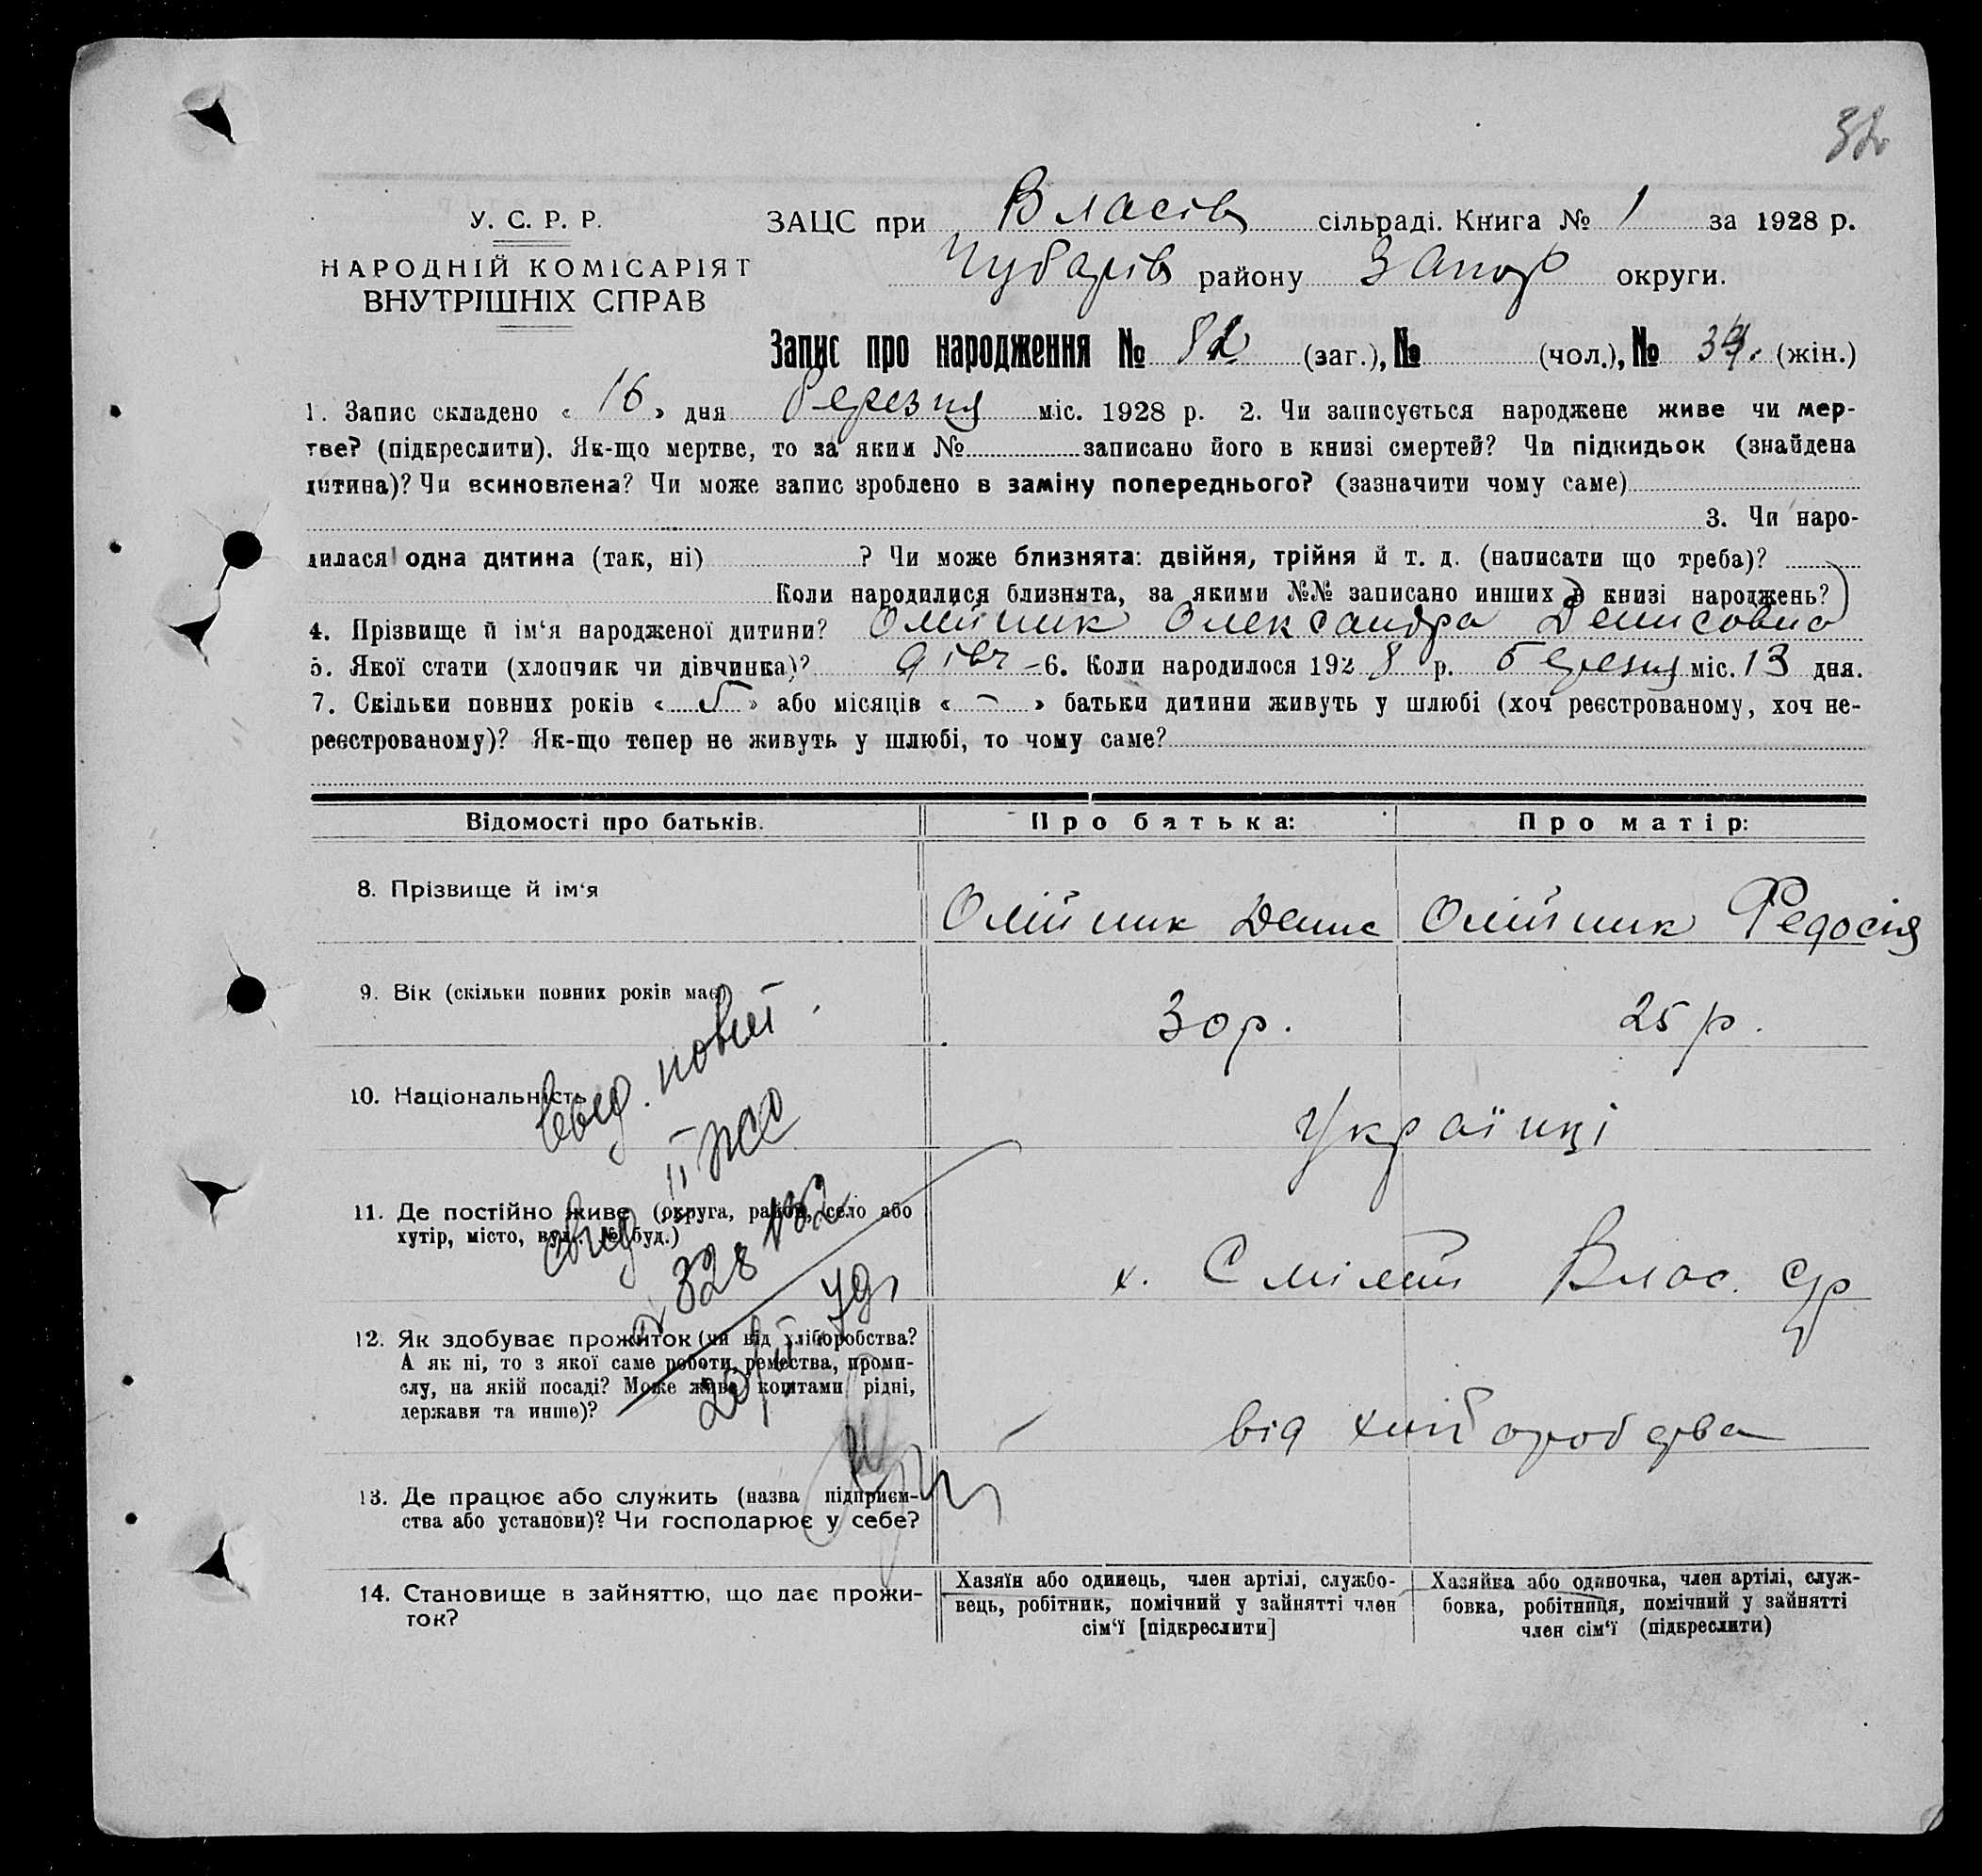 У. С. Р. Р.
НАРОДНІЙ КОМІСАРІЯТ
ВНУТРІШНІХ СПРАВ
ЗАЦС при Власів сільраді. Книга № 1 за 1928 р.
Чубарів району Запор округи.
Запис про народження № 82 (заг.), № (чол.), № (жін.)
1. Запис складено « 16 » дня березня міс. 1928 р. 2. Чи записується народжене живе чи мер-
тве? (підкреслити). Як-що мертве, то за яким № записано його в книзі смертей? Чи підкидьок (знайдена
дитина)? Чи всиновлена? Чи може запис зроблено в заміну попереднього? (зазначити чому саме)
3. Чи наро-
дилася одна дитина (так, ні) ? Чи може близнята: двійня, трійня й т. д. (написати що треба)?
Коли народилися близнята, за якими №№ записано инших в книзі народжень?
4. Прізвище й ім‘я народженої дитини? Олійник Олександра Денисовна
5. Якої стати (хлопчик чи дівчинка)? дівч - 6. Коли народилося 1928 р. березня міс. 13 дня.
7. Скільки повних років « 5 » або місяців « - » батьки дитини живуть у шлюбі (хоч реєстрованому, хоч не-
реєстрованому)? Як-що тепер не живуть у шлюбі, то чому саме?
Відомості про батьків. Про батька: Про матір:
8. Прізвище й ім‘я Олійник Денис Олійник Федосія
9. Вік (скільки повних років має) 30 р. 25 р.
10. Національність Українці
11. Де постійно живе (округа, район, село або
хутір, місто, вул., № буд.)
х. Смілий Влас. с/р
12. Як здобуває прожиток (чи від хліборобства?
А як ні, то з якої саме роботи, ремества, проми-
слу, на якій посаді? Може живе коштами рідні,
держави та инше)?
від хліборобства
13. Де працює або служить (назва підприєм-
ства або установи)? Чи господарює у себе?
14. Становище в зайняттю, що дає прожи-
ток?
Хазяїн або одинець, член артілі, службо-
вець, робітник, помічний у зайнятті член
сім‘ї [підкреслити]
Хазяйка або одиночка, член артілі, служ-
бовка, робітниця, помічний у зайнятті
член сім‘ї (підкреслити)